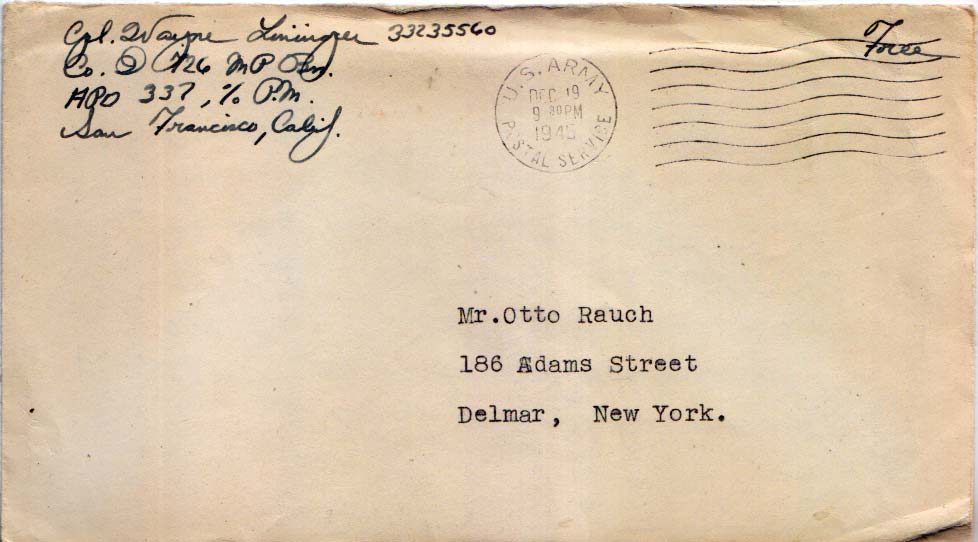 Cpl. Wayne Lininger 33235560
Co. D 726 MP Bn.
APO 337, % P.M.
San Francisco, Calif.
Free
U.S. ARMY
DEC 19
9 30PM
1945
POSTAL SERVICE
Mr.Otto Rauch
186 Adams Street
Delmar, New York.